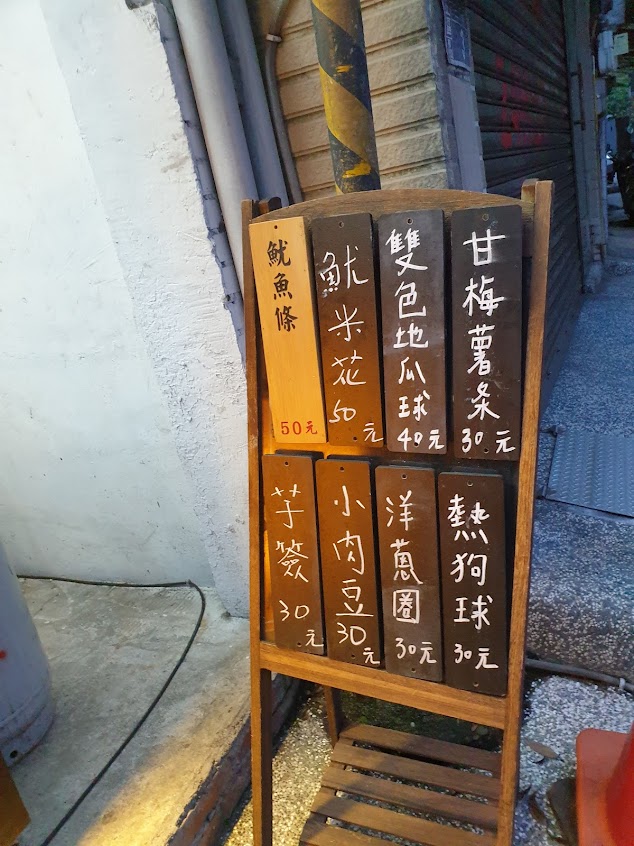 甘梅薯条
30元
雙色地瓜球
40元
魷米花
50元
魷魚條
50元
熱狗球
30元
洋蔥圈
30元
小肉豆
30元
芋簽
30元